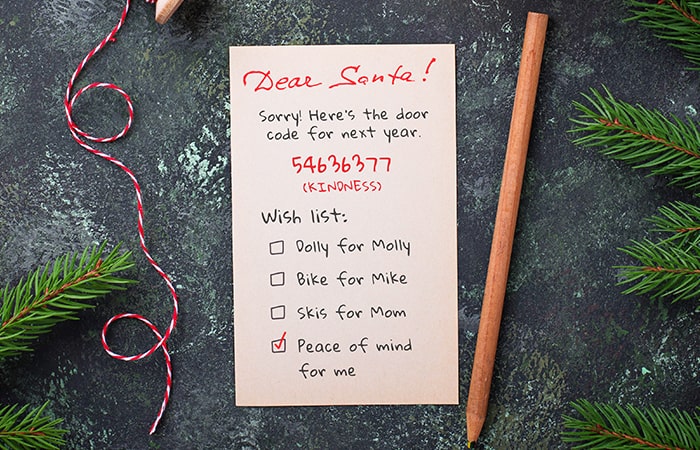 Dear Santa!
Sorry! Here's the door
code for next year.
54636377
(KINDNESS)
Wish list:
Dolly for Molly
Bike for Mike
Skis for Mom
Peace of mind
for me